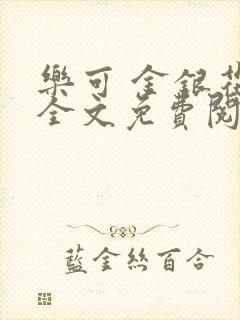 樂可 金銀花
全文免費閱
藍金絲百合